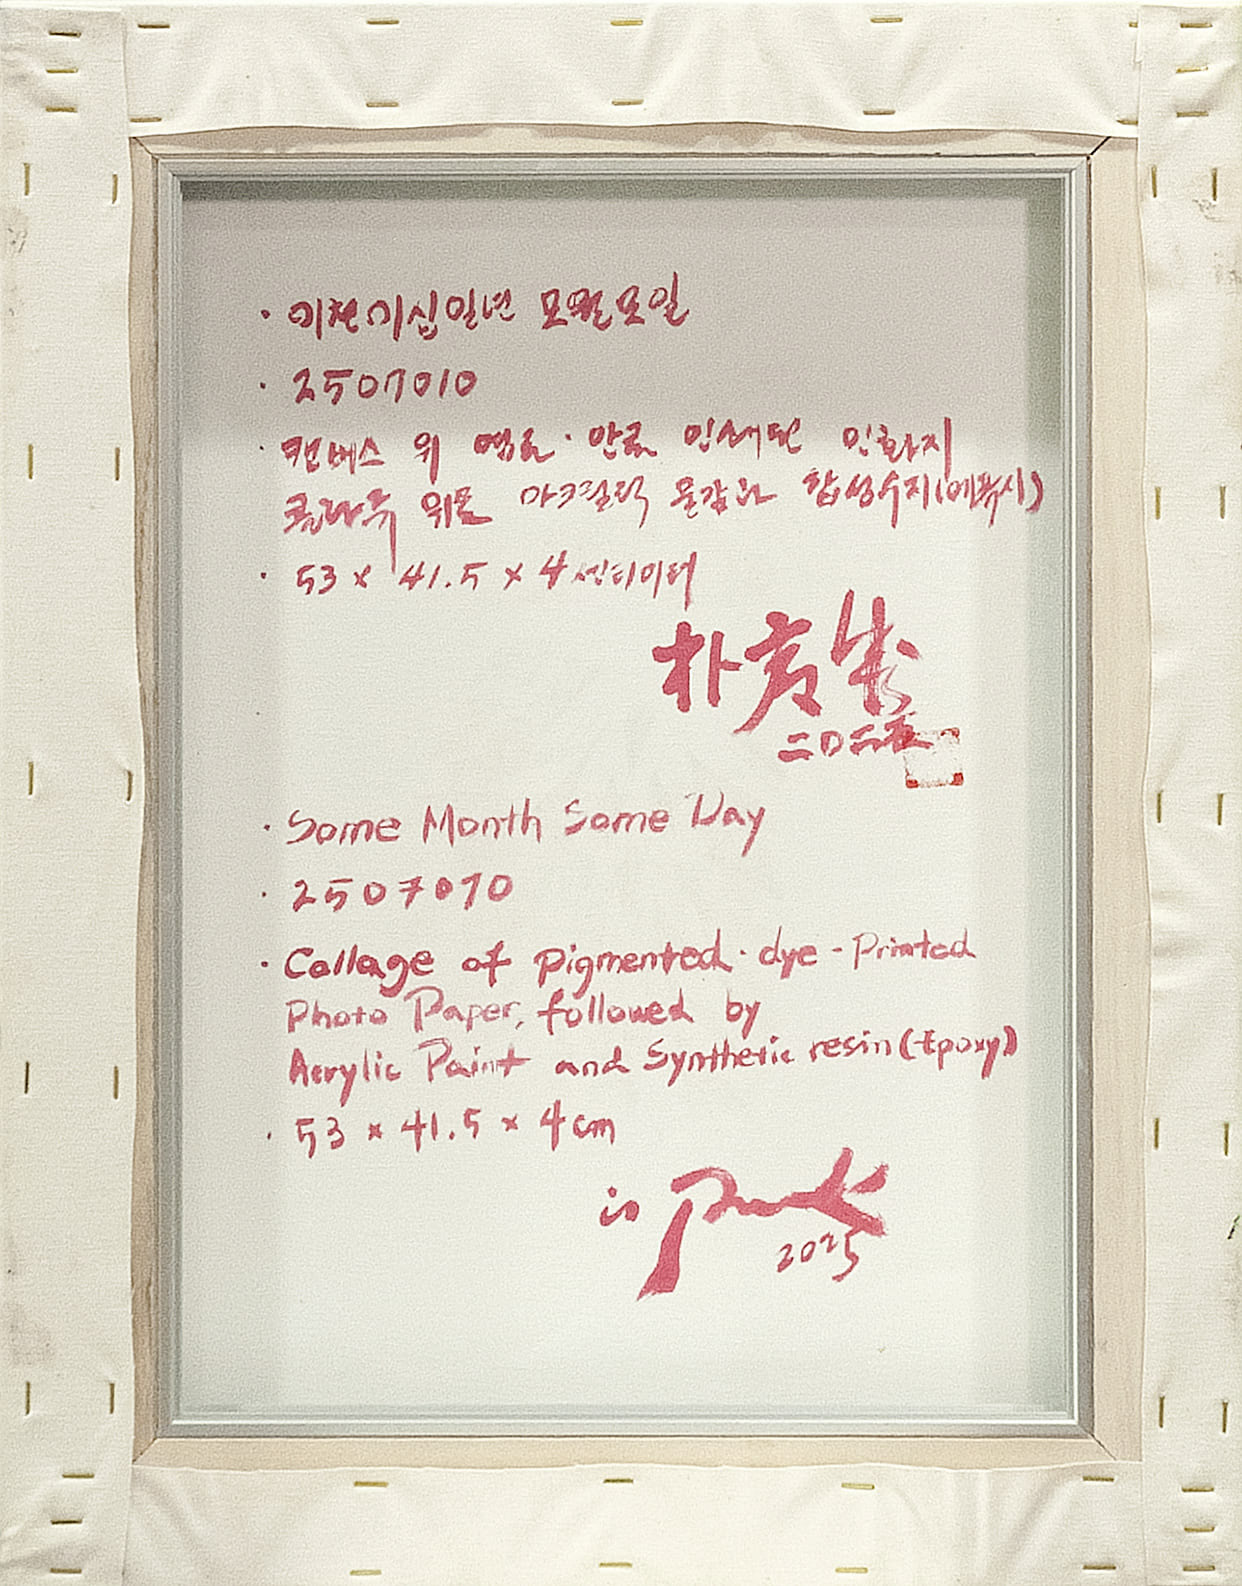 · 이천이십일년 모월모일
· 2507010
· 캔버스 위 염료·안료 인쇄된 인화지
콜라주 위로 아크릴릭 물감과 합성수지(에폭시)
· 53 x 41.5 x 4 센티미터
朴
二〇二五
· Some Month Some Day
· 2507010
· Collage of Pigmented·dye-Printed
Photo Paper, followed by
Acrylic Paint and Synthetic resin (Epoxy)
· 53 x 41.5 x 4 cm
Park
2025